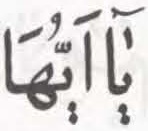 يَٰٓاَيُّهَا